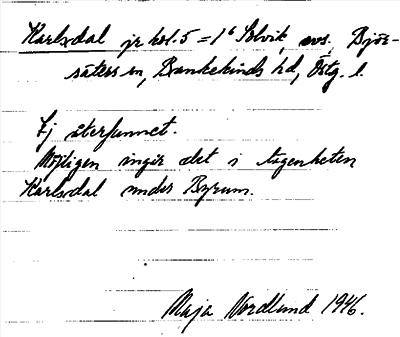 Karlsdal jr hel. 5 = 1⁶ Solvik, avs., Björ-
säters sn, Bankekinds hd, Östg. l.
Ej återfunnet.
Möjligen ingår det i lägenheten
Karlsdal under Byrum.
Maja Nordlund 1946.